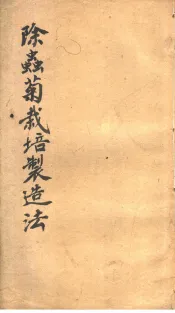 除蟲菊栽培製造法